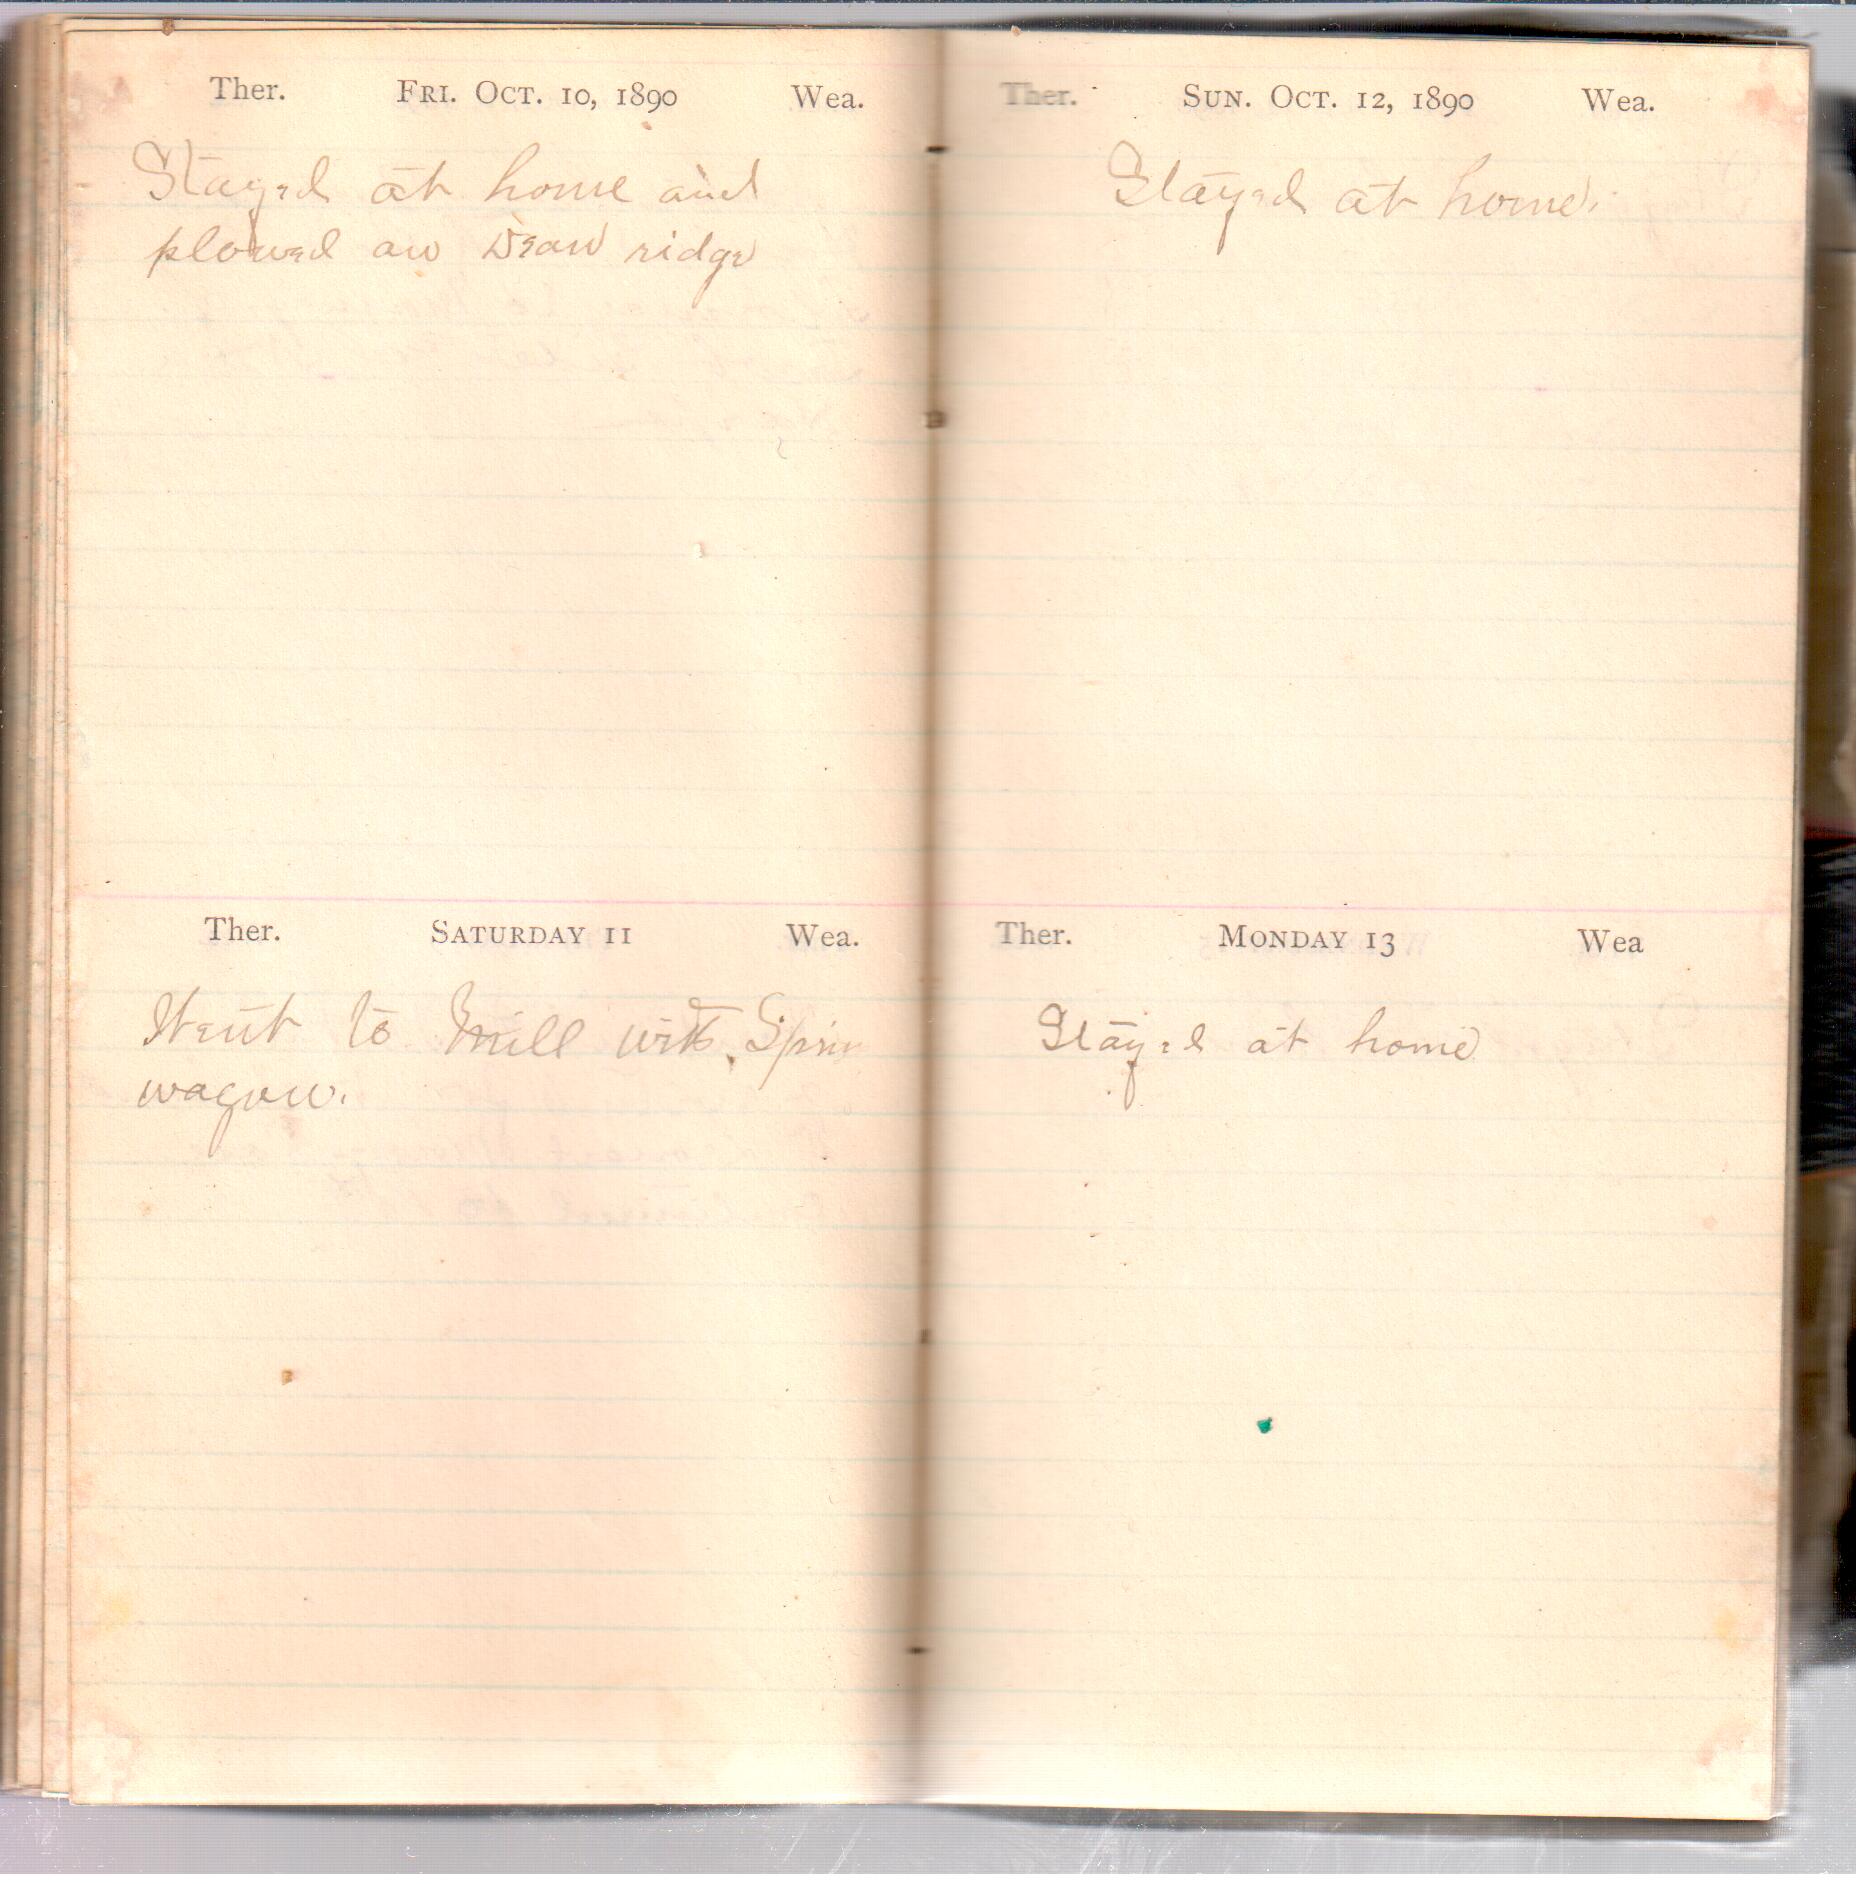 Ther. Fri. Oct. 10, 1890 Wea.
Stayed at home and
plowed on Dean ridge
Ther. Saturday 11 Wea.
Went to Mill with Sprin
wagon.
Ther. Sun. Oct. 12, 1890 Wea.
Stayed at home.
Ther. Monday 13 Wea
Stayed at home